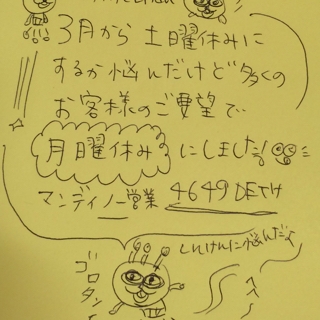 3月から土曜休みに
するか悩んだけど多くの
お客様のご要望で
月曜休みにしました!
マンディノー営業 4649DETH
しんけんに悩んだよ
ゴロタン
へへ